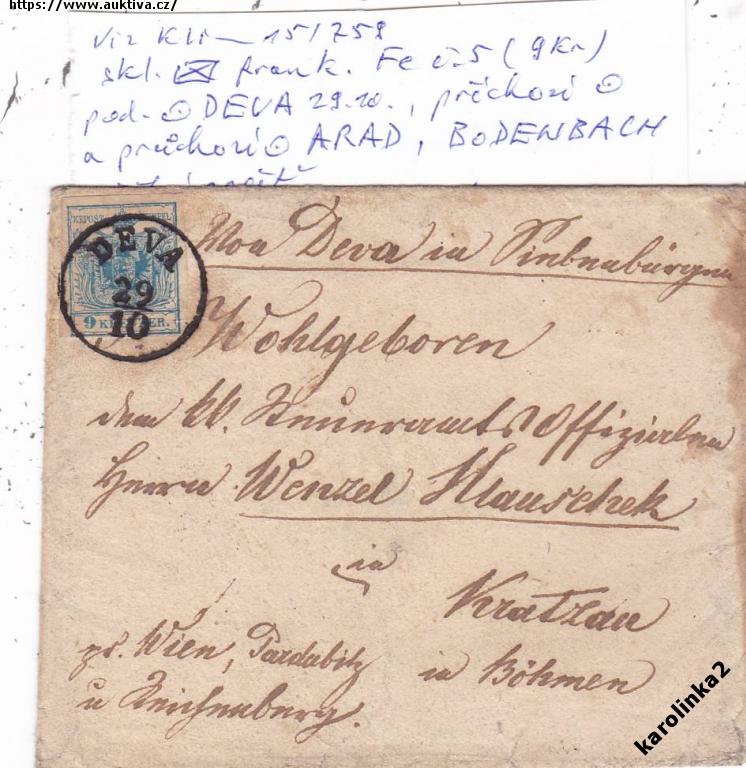 https://www.auktiva.cz/
viz Kli 15/758
skl. frank. Fe č.5 (9Kr)
pod. DEVA 29.10., příchozí
a průchozí ARAD, BODENBACH
DEVA
29
10
9 KREUZER.
Von Deva in Siebenbürgen
Wohlgeboren
dem kk. Steueramts Offizialen
Herrn Wenzel Hlauschek
in
Kratzau
in Böhmen
pr. Wien, Pardubitz
u Reichenberg.
karolinka2